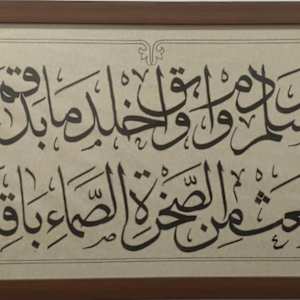 سلم ودم وابق واخلد ما بدا قم
عث من الصخرة الصماء باق